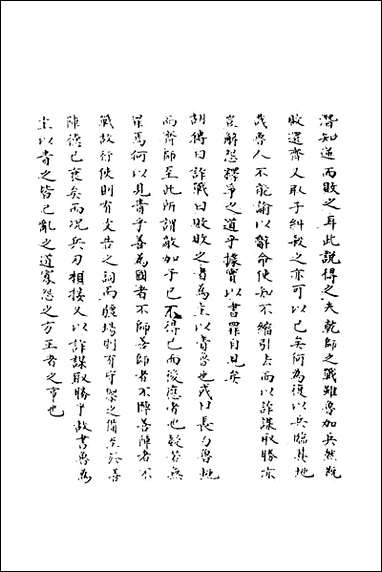 潛知道而敗之耳此說得之夫乾師之戰雖魯加兵然既
敗還齊人取子糾殺之亦可以已矣何為復以兵臨其地
哉魯人不能諭以辭命使知不縮引去而以詐謀取勝亦
豈解怨釋爭之道乎據實以書罪自見矣
胡傳曰詐戰曰敗敗之者為主以責魯也或曰長勺魯地
而齊師至此所謂敵加于己不得已而後應者也疑若無
罪焉何以見責乎善為國者不師善師者不陣善陣者不
戰故行使則有文告之詞而疆埸則有守禦之備至於善
陣德已衰矣而況兵刃相接又以詐謀取勝乎故書魯為
主以責之皆已亂之道寡怨之方王者之事也